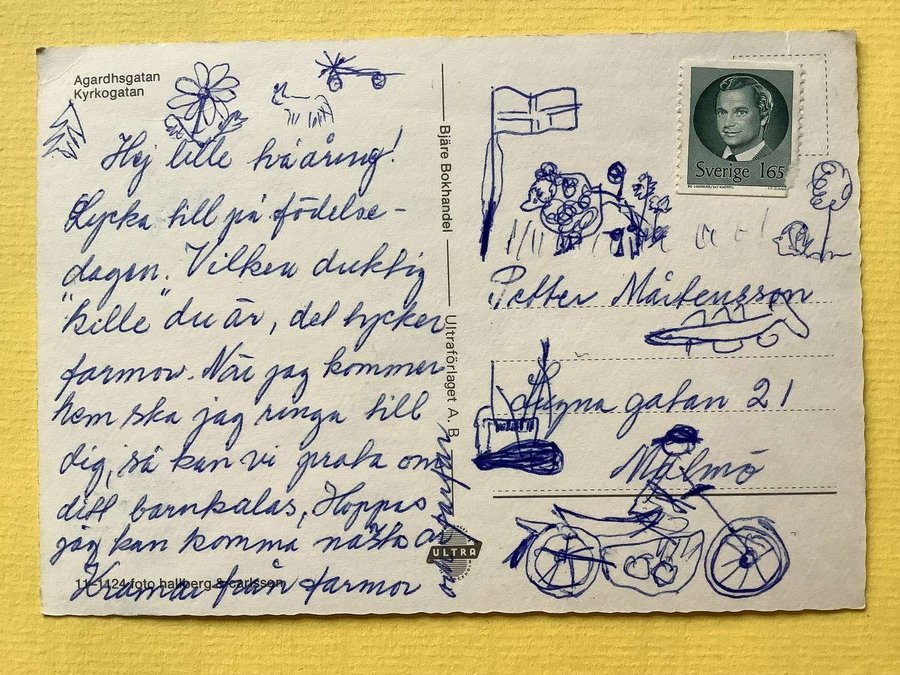 Agardhsgatan
Kyrkogatan
Hej lille tvååring!
Lycka till på födelse-
dagen. Vilken duktig
"kille" du är, det tycker
farmor. När jag kommer
hem ska jag ringa till
dig, så kan vi prata om
ditt barnkalas, Hoppas
jag kan komma nästa år
Kramar från farmor
11-1124 foto hallberg & carlsson
Bjäre Bokhandel
Ultraförlaget A.B
ULTRA
Sverige 165
Petter Mårtensson
gatan 21
Malmö